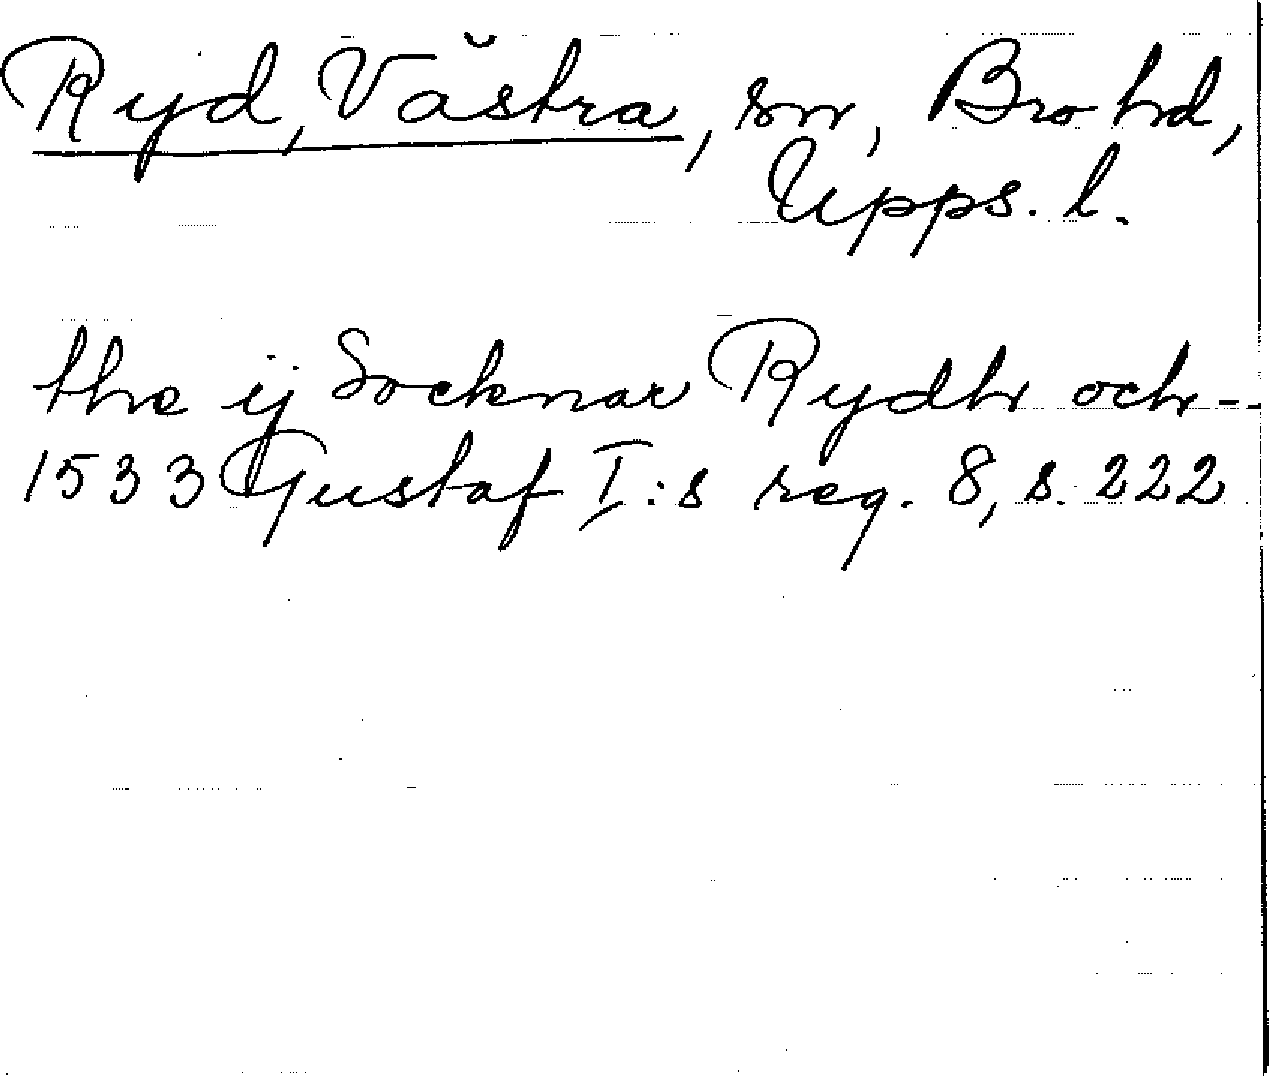 Ryd, Västra, sn, Bro hd,
Upps. l.
the ij Socknar Rydh och --
1533 Gustaf I:s reg. 8, s. 222